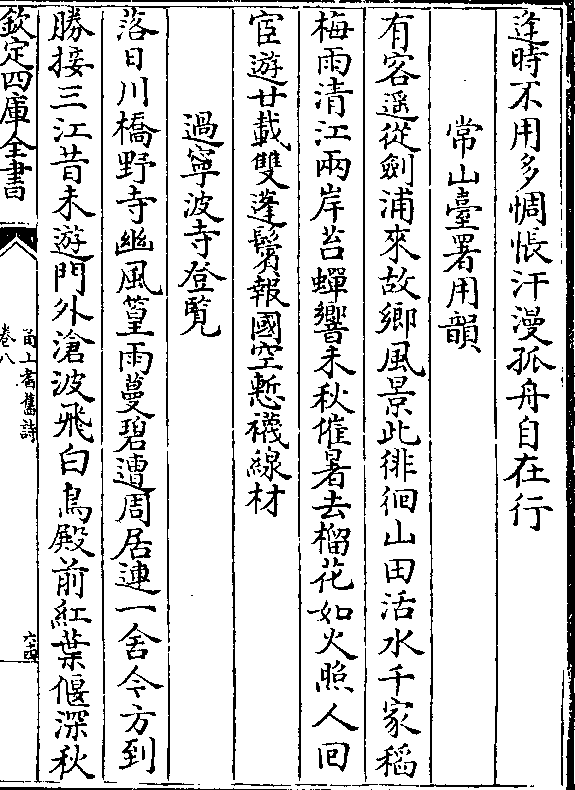 逢時不用多惆悵汗漫孤舟自在行
常山臺署用韻
有客遥從劍浦來故鄉風景此徘徊山田活水千家稻
梅雨清江兩岸苔蟬響未秋催暑去榴花如火照人回
宦遊廿載雙蓬鬢報國空慙襪線材
過寧波寺登覧
落日川橋野寺幽風篁雨蔓碧遭周居連一舍今方到
勝接三江昔未遊門外滄波飛白鳥殿前紅葉偃深秋
欽定四庫全書
甬上耆舊詩
卷八